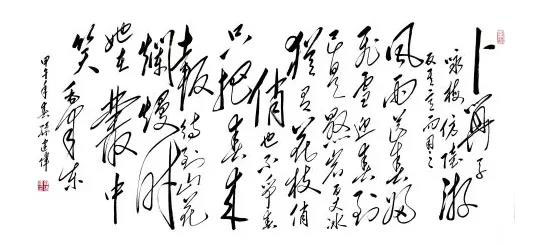 卜算子
咏梅 仿陆游
反其意而用之
风雨送春归
飞雪迎春到
已是悬崖百丈冰
犹有花枝俏
俏也不争春
只把春来
报 待到山花
烂熳时
她在丛中
笑
甲午年